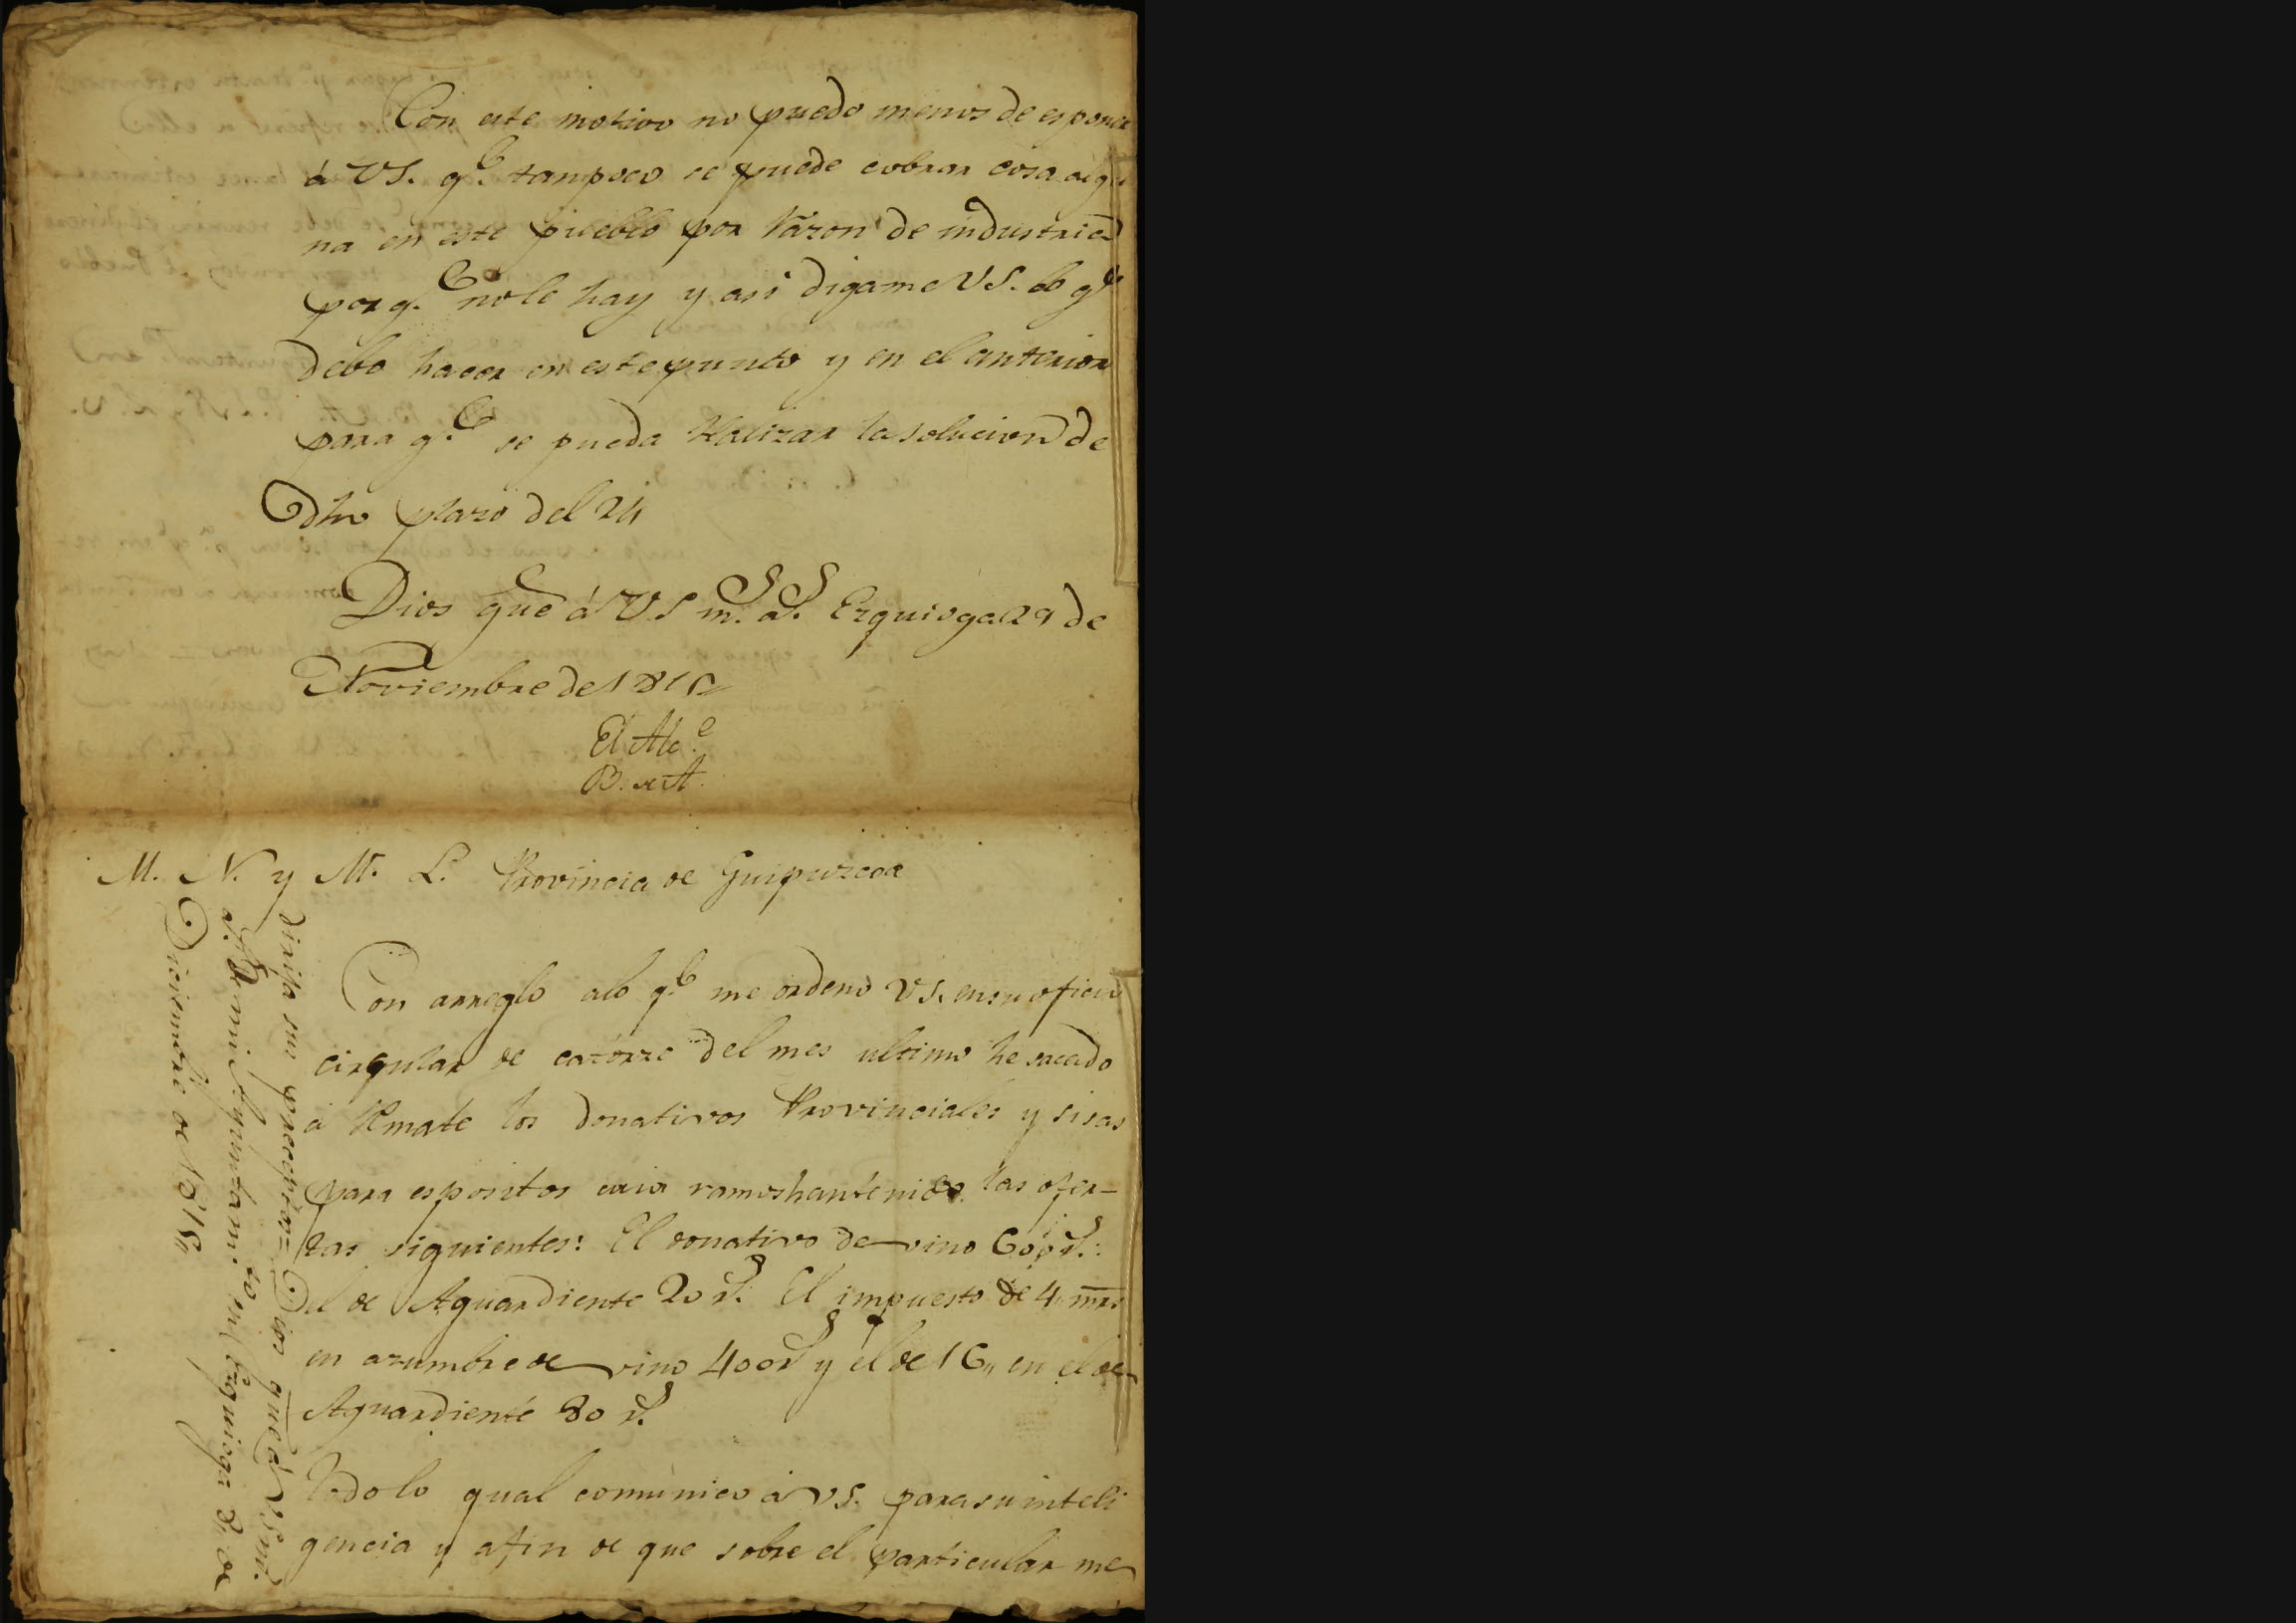 Con este motivo no puedo menos de esponer
á VS. q.e tampoco se puede cobrar cosa algu
na en este pueblo por Razon de industria
porq.e no le hay y asi digame VS. lo q.e
debo hacer en este punto y en el anterior
para q.e se pueda Realizar la solucion de
dho plazo del 24
Dios gue á VS m.s a.s Ezquioga 29 de
Noviembre de 1815
El Alc.e
B. de A.
M. N. y M. L. Provincia de Guipuzcoa
Con arreglo alo q.e me ordenó VS. en su oficio
circular de catorze del mes ultimo he sacado
á Remate los donativos Provinciales y sisas
para espositos cuios ramos han tenido las ofer-
tas siguientes: El donativo de vino 600 r.s:
el de Aguardiente 20 r.s El impuesto de 4 mrs
en azumbre de vino 400 r.s y el de 16,, en el de
Aguardiente 80 r.s
Todo lo qual comunico á VS. para su inteli
gencia y afin de que sobre el particular me
dirija sus preceptos = Dios gue á VS m.
a.s De mi Ayuntam.to en Ezquioga 3 de
Diciembre de 1815